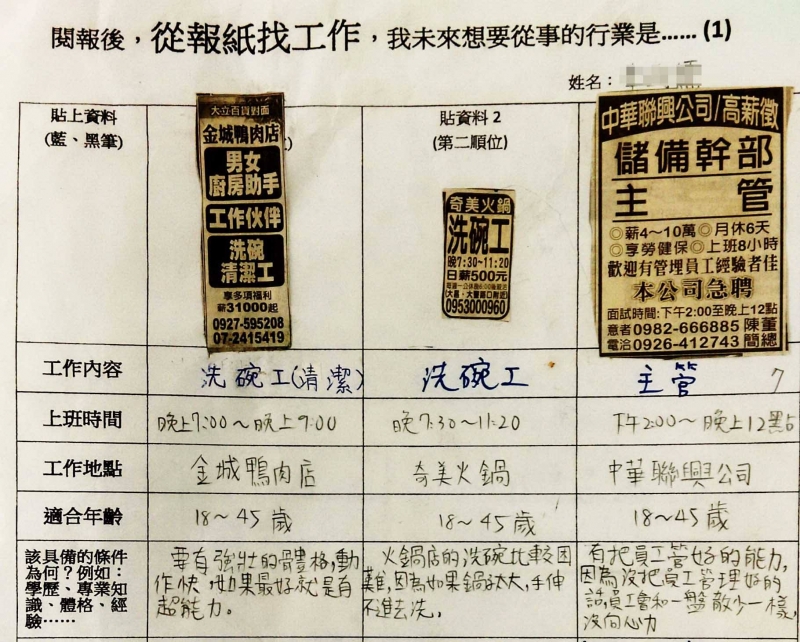 閱報後，從報紙找工作，我未來想要從事的行業是…… (1)
姓名：
貼上資料
(藍、黑筆)
大立百貨對面
金城鴨肉店
男女
廚房助手
工作伙伴
洗碗
清潔工
享多項福利
薪31000起
0927-595208
07-2415419
貼資料 2
(第二順位)
奇美火鍋
洗碗工
晚7:30～11:20
日薪500元
0953000960
中華聯興公司/高薪徵
儲備幹部
主管
◎薪4～10萬◎月休6天
◎享勞健保◎上班8小時
歡迎有管理員工經驗者佳
本公司急聘
面試時間:下午2:00至晚上12點
意者0982-666885陳董
電洽0926-412743簡總
工作內容
洗碗工(清潔)
洗碗工
主管
7
上班時間
晚上7:00～晚上9:00
晚7:30～11:20
下午2:00～晚上12點
工作地點
金城鴨肉店
奇美火鍋
中華聯興公司
適合年齡
18～45歲
18～45歲
18～45歲
該具備的條件
為何？例如：
學歷、專業知
識、體格、經
驗……
要有強壯的體格,動
作快,如果最好就是有
超能力。
火鍋店的洗碗比較困
難,因為如果鍋太大,手伸
不進去洗。
有把員工管好的能力,
因為沒把員工管理好的
話,員工會和一盤散沙一樣,
沒向心力